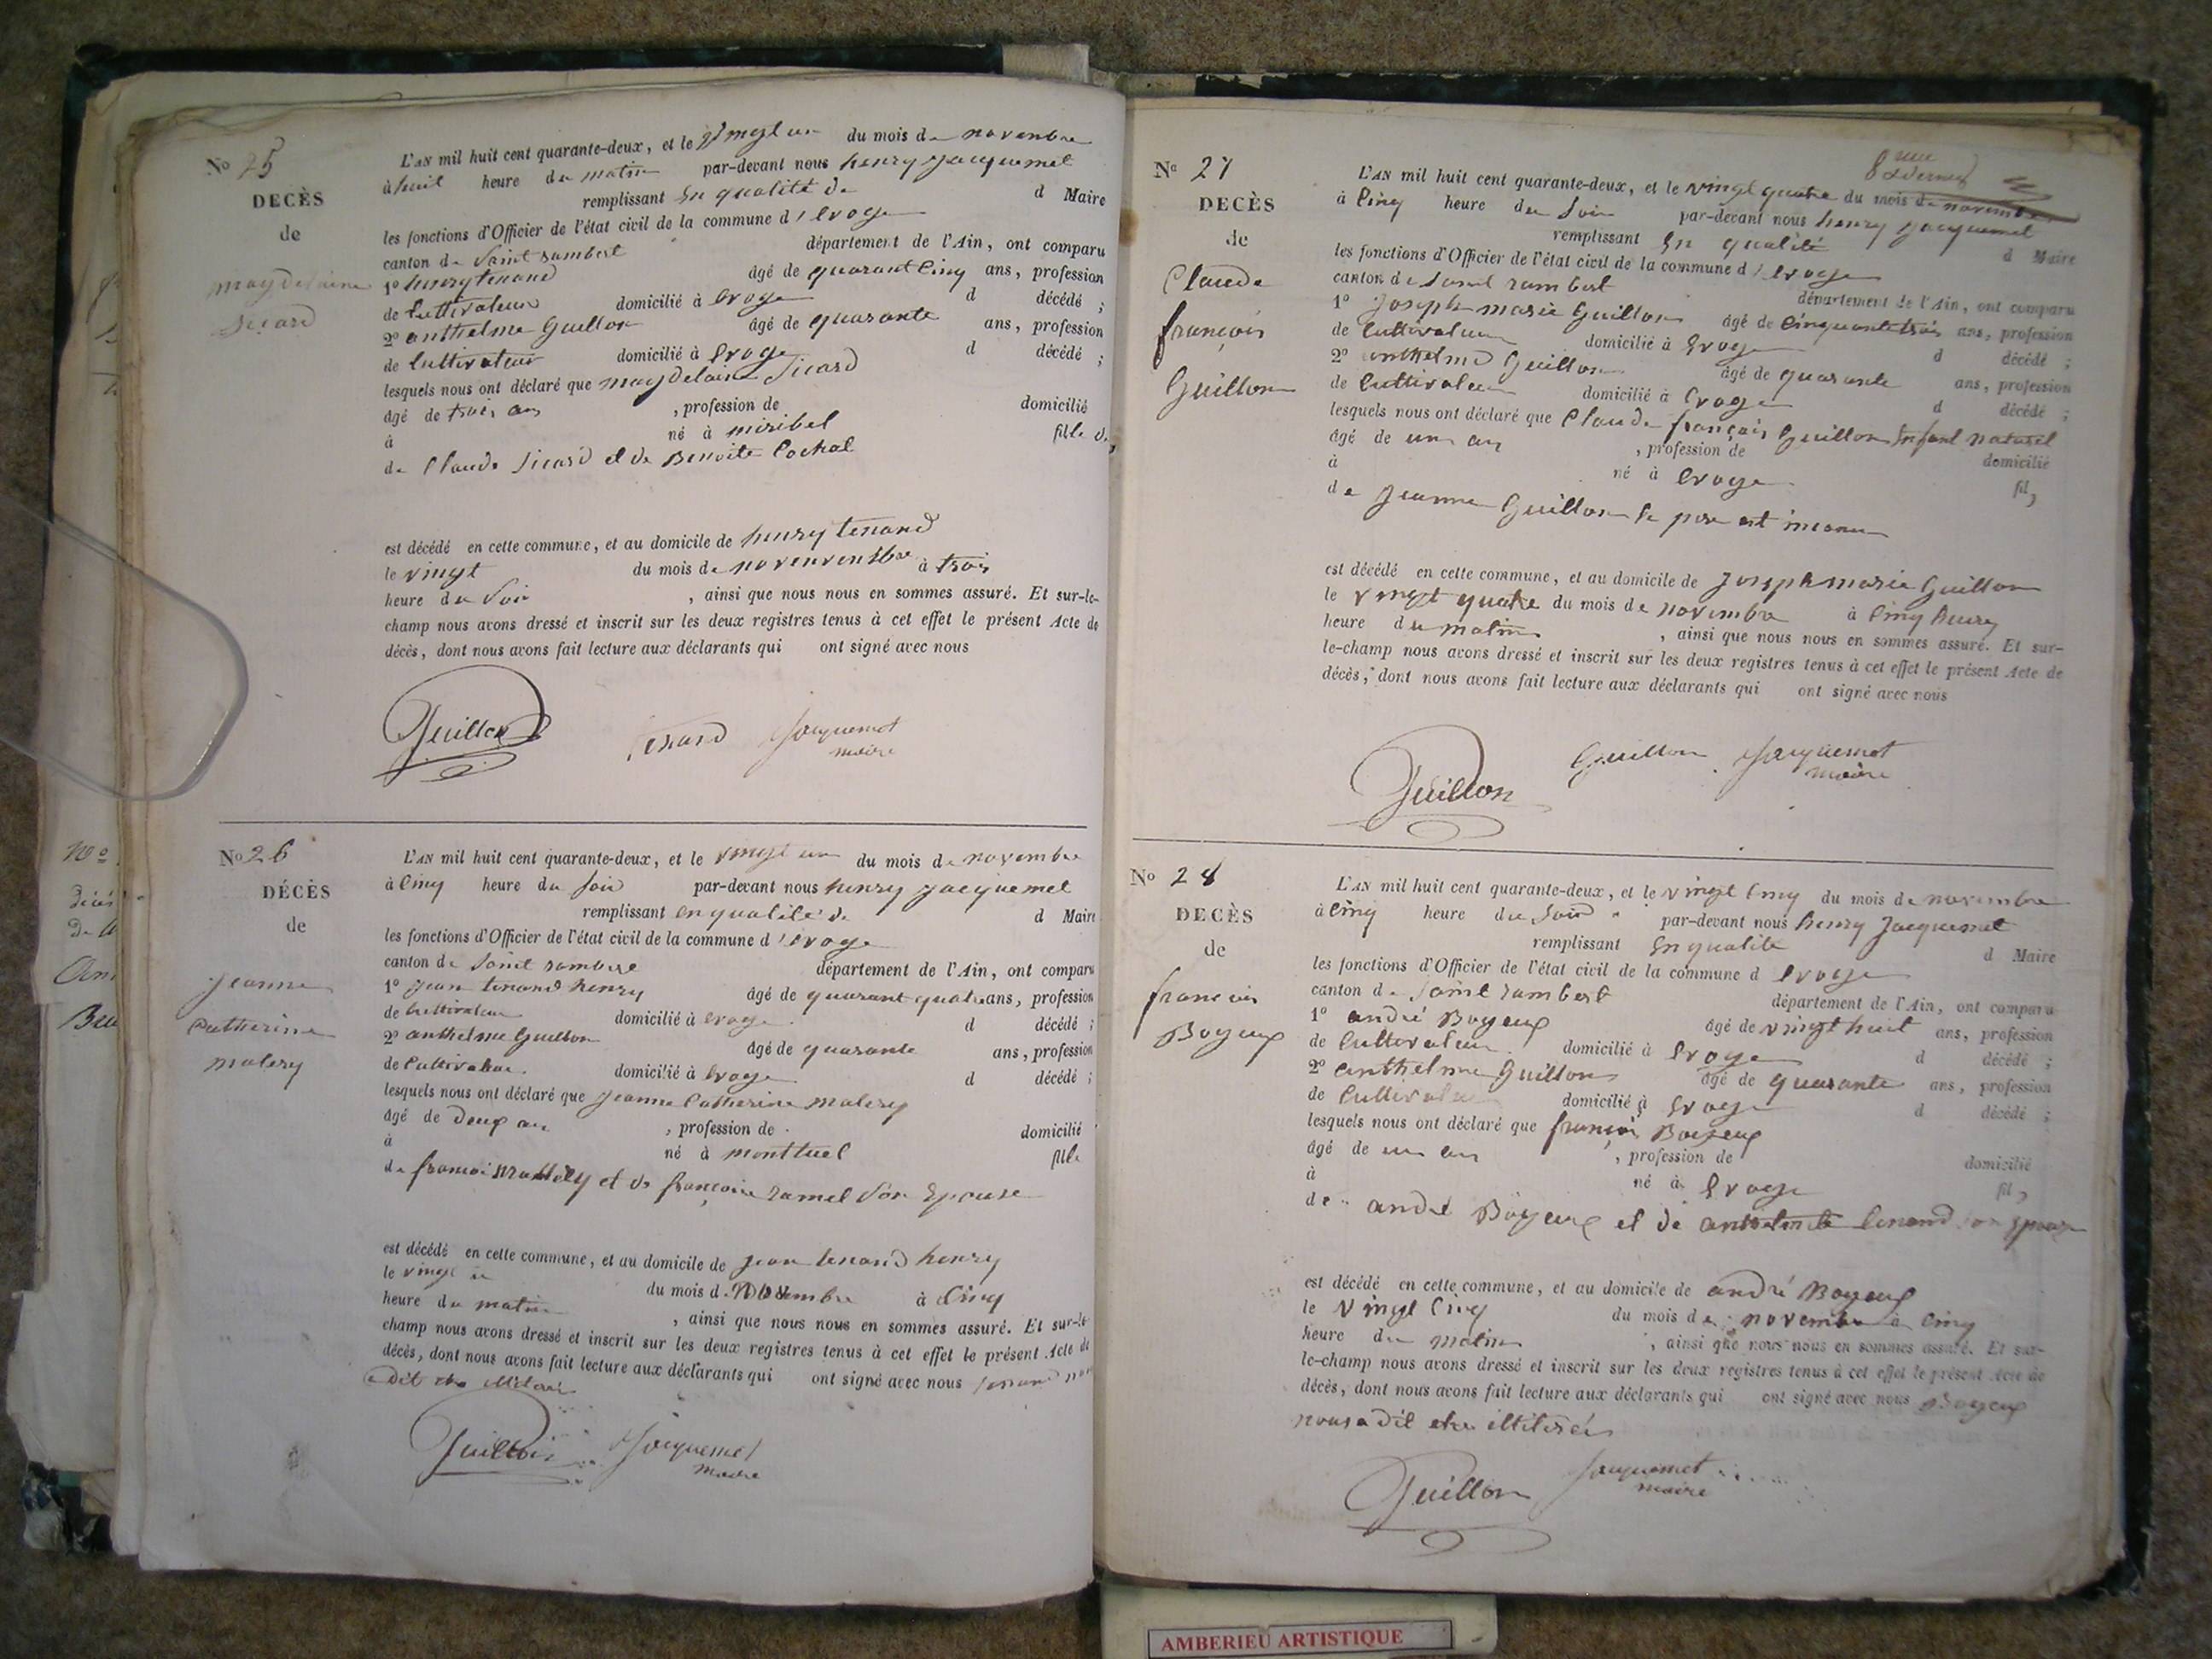 No 25
DECÈS
de
magdelaine
Sicard
L'AN mil huit cent quarante-deux, et le vingt un du mois de novembre
à huit heure du matin par-devant nous henry jacquemet
remplissant en qualité de d Maire
les fonctions d'Officier de l'état civil de la commune d'evoge
canton de Saint rambert département de l'Ain, ont comparu
1º henry tenand âgé de quarant cinq ans, profession
de cultivateur domicilié à evoge d décédé ;
2º anthelme Guillon âgé de quarante ans, profession
de cultivateur domicilié à evoge d décédé ;
lesquels nous ont déclaré que magdelaine Sicard
âgé de trois ans , profession de domicilié
à né à miribel fille de
de Claude Sicard et de Benoite Cochal
est décédé en cette commune, et au domicile de henry tenand
le vingt du mois de à trois
heure du Soir , ainsi que nous nous en sommes assuré. Et sur-le-
champ nous avons dressé et inscrit sur les deux registres tenus à cet effet le présent Acte de
décès, dont nous avons fait lecture aux déclarants qui ont signé avec nous
Guillon tenand Jacquemet
maire
No 26
DÉCÈS
de
jeanne
Catherine
malery
L'AN mil huit cent quarante-deux, et le vingt un du mois de novembre
à cinq heure du soir par-devant nous henry jacquemet
remplissant en qualité de d Maire
les fonctions d'Officier de l'état civil de la commune d'evoge
canton de Saint rambert département de l'Ain, ont comparu
1º jean tenand henry âgé de quarant quatre ans, profession
de cultivateur domicilié à evoge d décédé ;
2º anthelme Guillon âgé de quarante ans, profession
de Cultivateur domicilié à evoge d décédé ;
lesquels nous ont déclaré que jeanne Catherine malery
âgé de deux an , profession de domicilié
à né à montluel fille
de francoi et de françoise ramel Son Epouse
est décédé en cette commune, et au domicile de jean tenand henry
le vingt un du mois de novembre à cinq
heure du matin , ainsi que nous nous en sommes assuré. Et sur-le
champ nous avons dressé et inscrit sur les deux registres tenus à cet effet le présent Acte de
décès, dont nous avons fait lecture aux déclarants qui ont signé avec nous tenand
a dit
Guillon Jacquemet
maire
No 27
DECÈS
de
Claude
françois
Guillon
L'AN mil huit cent quarante-deux, et le vingt quatre du mois de novembre
à cinq heure du soir par-devant nous henry jacquemet
remplissant en qualité d Maire
les fonctions d'Officier de l'état civil de la commune d'evoge
canton de Saint rambert département de l'Ain, ont comparu
1º joseph marie Guillon âgé de cinquante trois ans, profession
de cultivateur domicilié à Evoge d décédé ;
2º anthelme Guillon âgé de quarante ans, profession
de cultivateur domicilié à evoge d décédé ;
lesquels nous ont déclaré que Claude françois Guillon Enfant naturel
âgé de un an , profession de domicilié
à né à evoge fil,
de jeanne Guillon le pere est inconu
est décédé en cette commune, et au domicile de joseph marie Guillon
le vingt quatre du mois de novembre à cinq heures
heure du matin , ainsi que nous nous en sommes assuré. Et sur-
le-champ nous avons dressé et inscrit sur les deux registres tenus à cet effet le présent Acte de
décès, dont nous avons fait lecture aux déclarants qui ont signé avec nous
Guillon Guillon Jacquemet
maire
No 28
DECÈS
de
francois
Boyeux
L'AN mil huit cent quarante-deux, et le vingt cinq du mois de novembre
à cinq heure du soir par-devant nous henry jacquemet
remplissant En qualité d Maire
les fonctions d'Officier de l'état civil de la commune d evoge
canton de Saint rambert département de l'Ain, ont comparu
1º andré Boyeux âgé de vingt huit ans, profession
de cultivateur domicilié à evoge d décédé ;
2º anthelme Guillon âgé de quarante ans, profession
de cultivateur domicilié à Evoge d décédé ;
lesquels nous ont déclaré que françois Boyeux
âgé de un an , profession de domicilié
à né à Evoge fil,
de andré Boyeux et de tenand son epouse
est décédé en cette commune, et au domicile de andré Boyeux
le vingt cinq du mois de novembre à cinq
heure du matin , ainsi que nous nous en sommes assuré. Et sur-
le-champ nous avons dressé et inscrit sur les deux registres tenus à cet effet le présent Acte de
décès, dont nous avons fait lecture aux déclarants qui ont signé avec nous Boyeux
nous a dit etre illitéré
Guillon Jacquemet
maire
AMBERIEU ARTISTIQUE